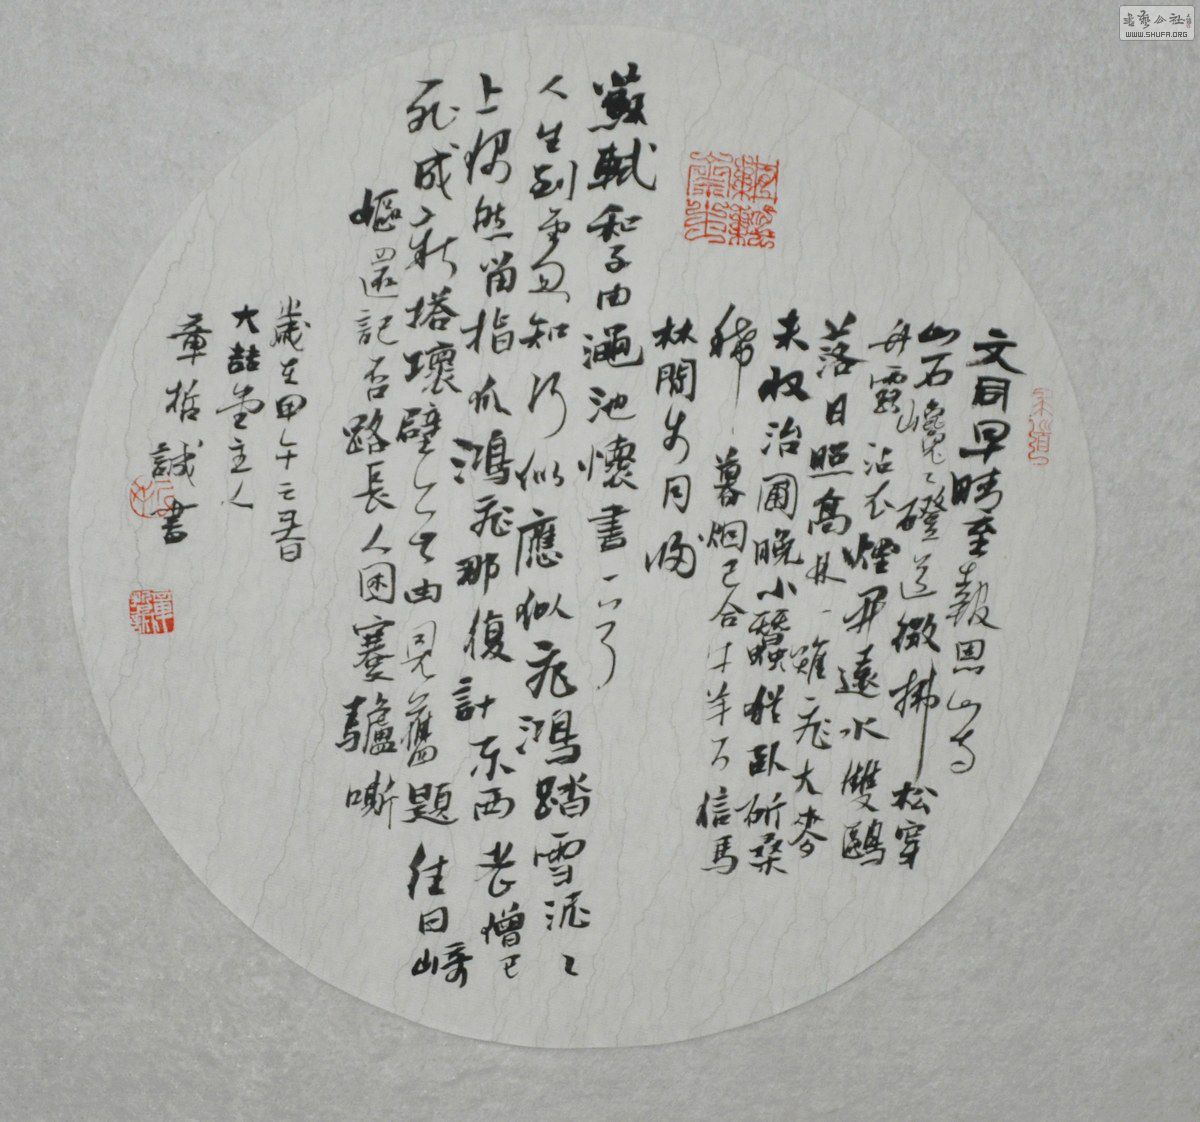 文同早晴至報恩山寺
山石巉々磴道微拂松穿
竹露沾衣煙開遠水雙鷗
落日照高林一雉飛大麥
未收治圃晚小蠶猶臥斫桑
稀暮烟已合牛羊下信馬
林間步月歸
蘇軾和子由澠池懷書一
人生到處忽知何似應似飛鴻踏雪泥々
上偶然留指爪鴻飛那復計東西老僧已
死成新塔壞壁無由見舊題往日崎
嶇還記否路長人困蹇驢嘶
歲在甲午之春日
大喆堂主人
章哲誠書
書藝公社
WWW.SHUFA.ORG